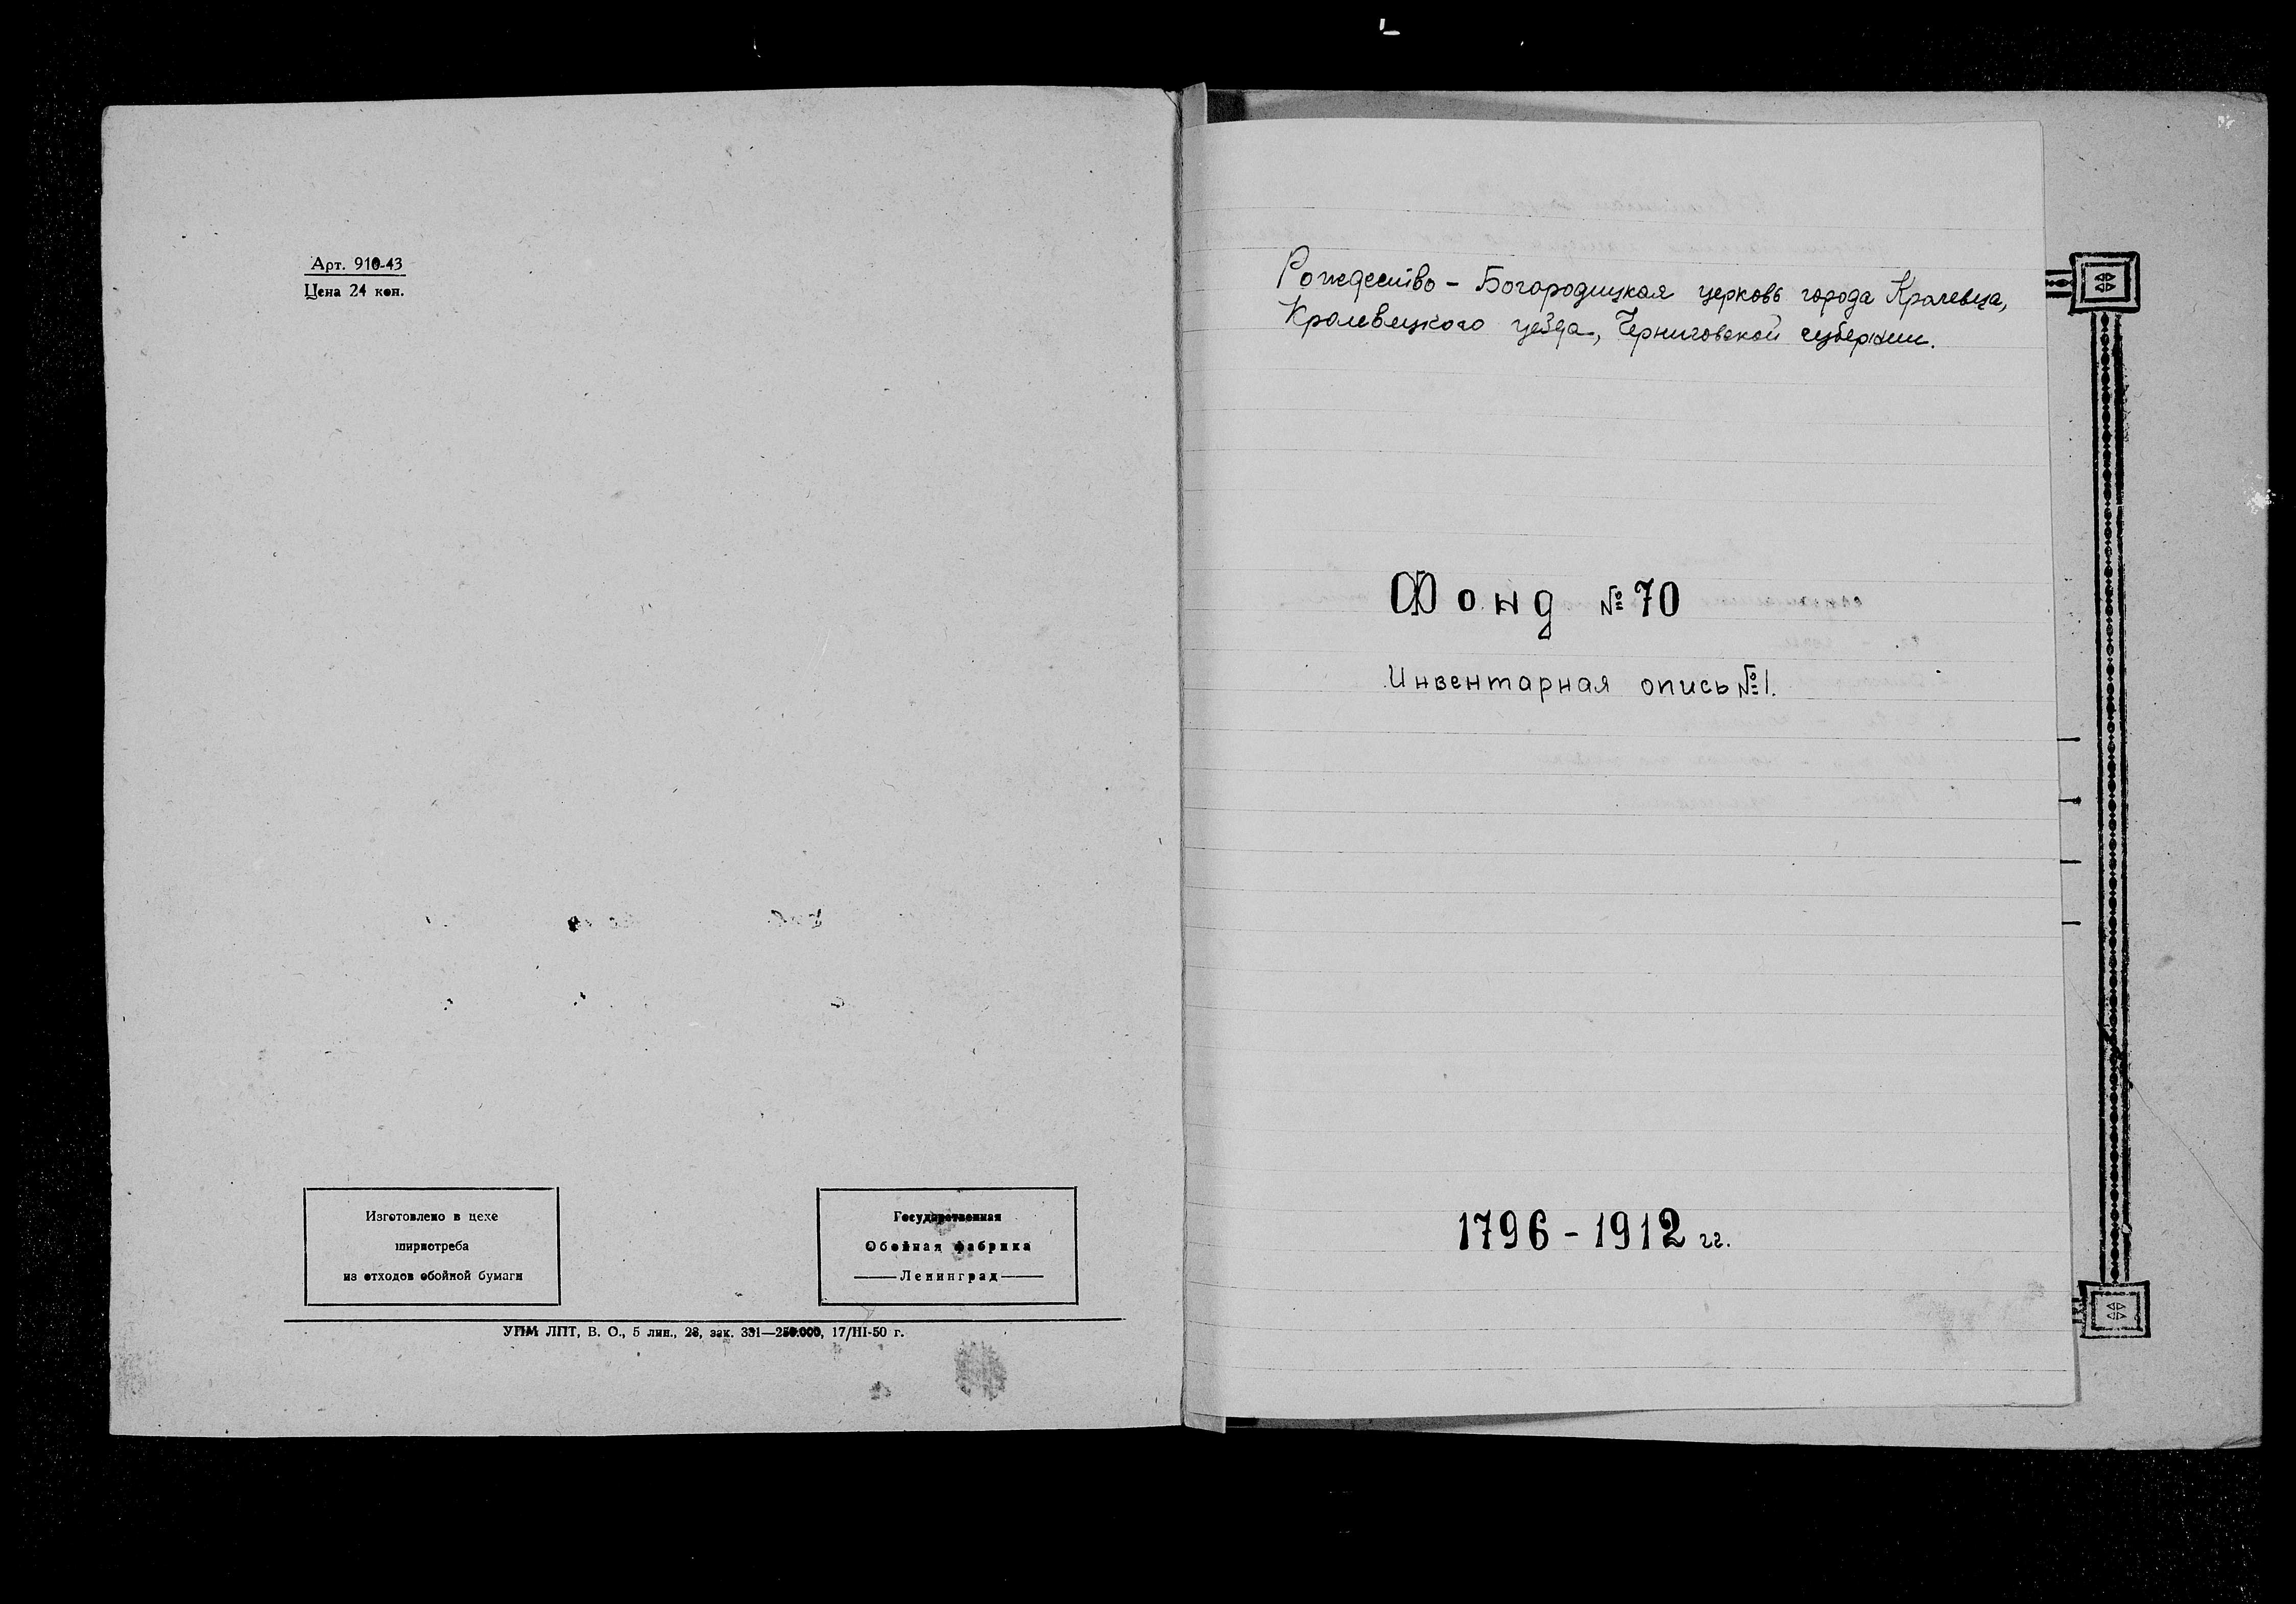 Арт. 910-43
Цена 24 коп.
Изготовлено в цехе
ширпотреба
из отходов обойной бумаги
Государственная
Обойная фабрика
Ленинград
УПМ ЛПТ, В. О., 5 лин., 28, зак. 331—250.000, 17/III-50 г.
Рождество-Богородицкая церковь города Кролевца,
Кролевецкого уезда, Черниговской губернии.
Фонд №70
Инвентарная опись №1.
1796-1912 гг.